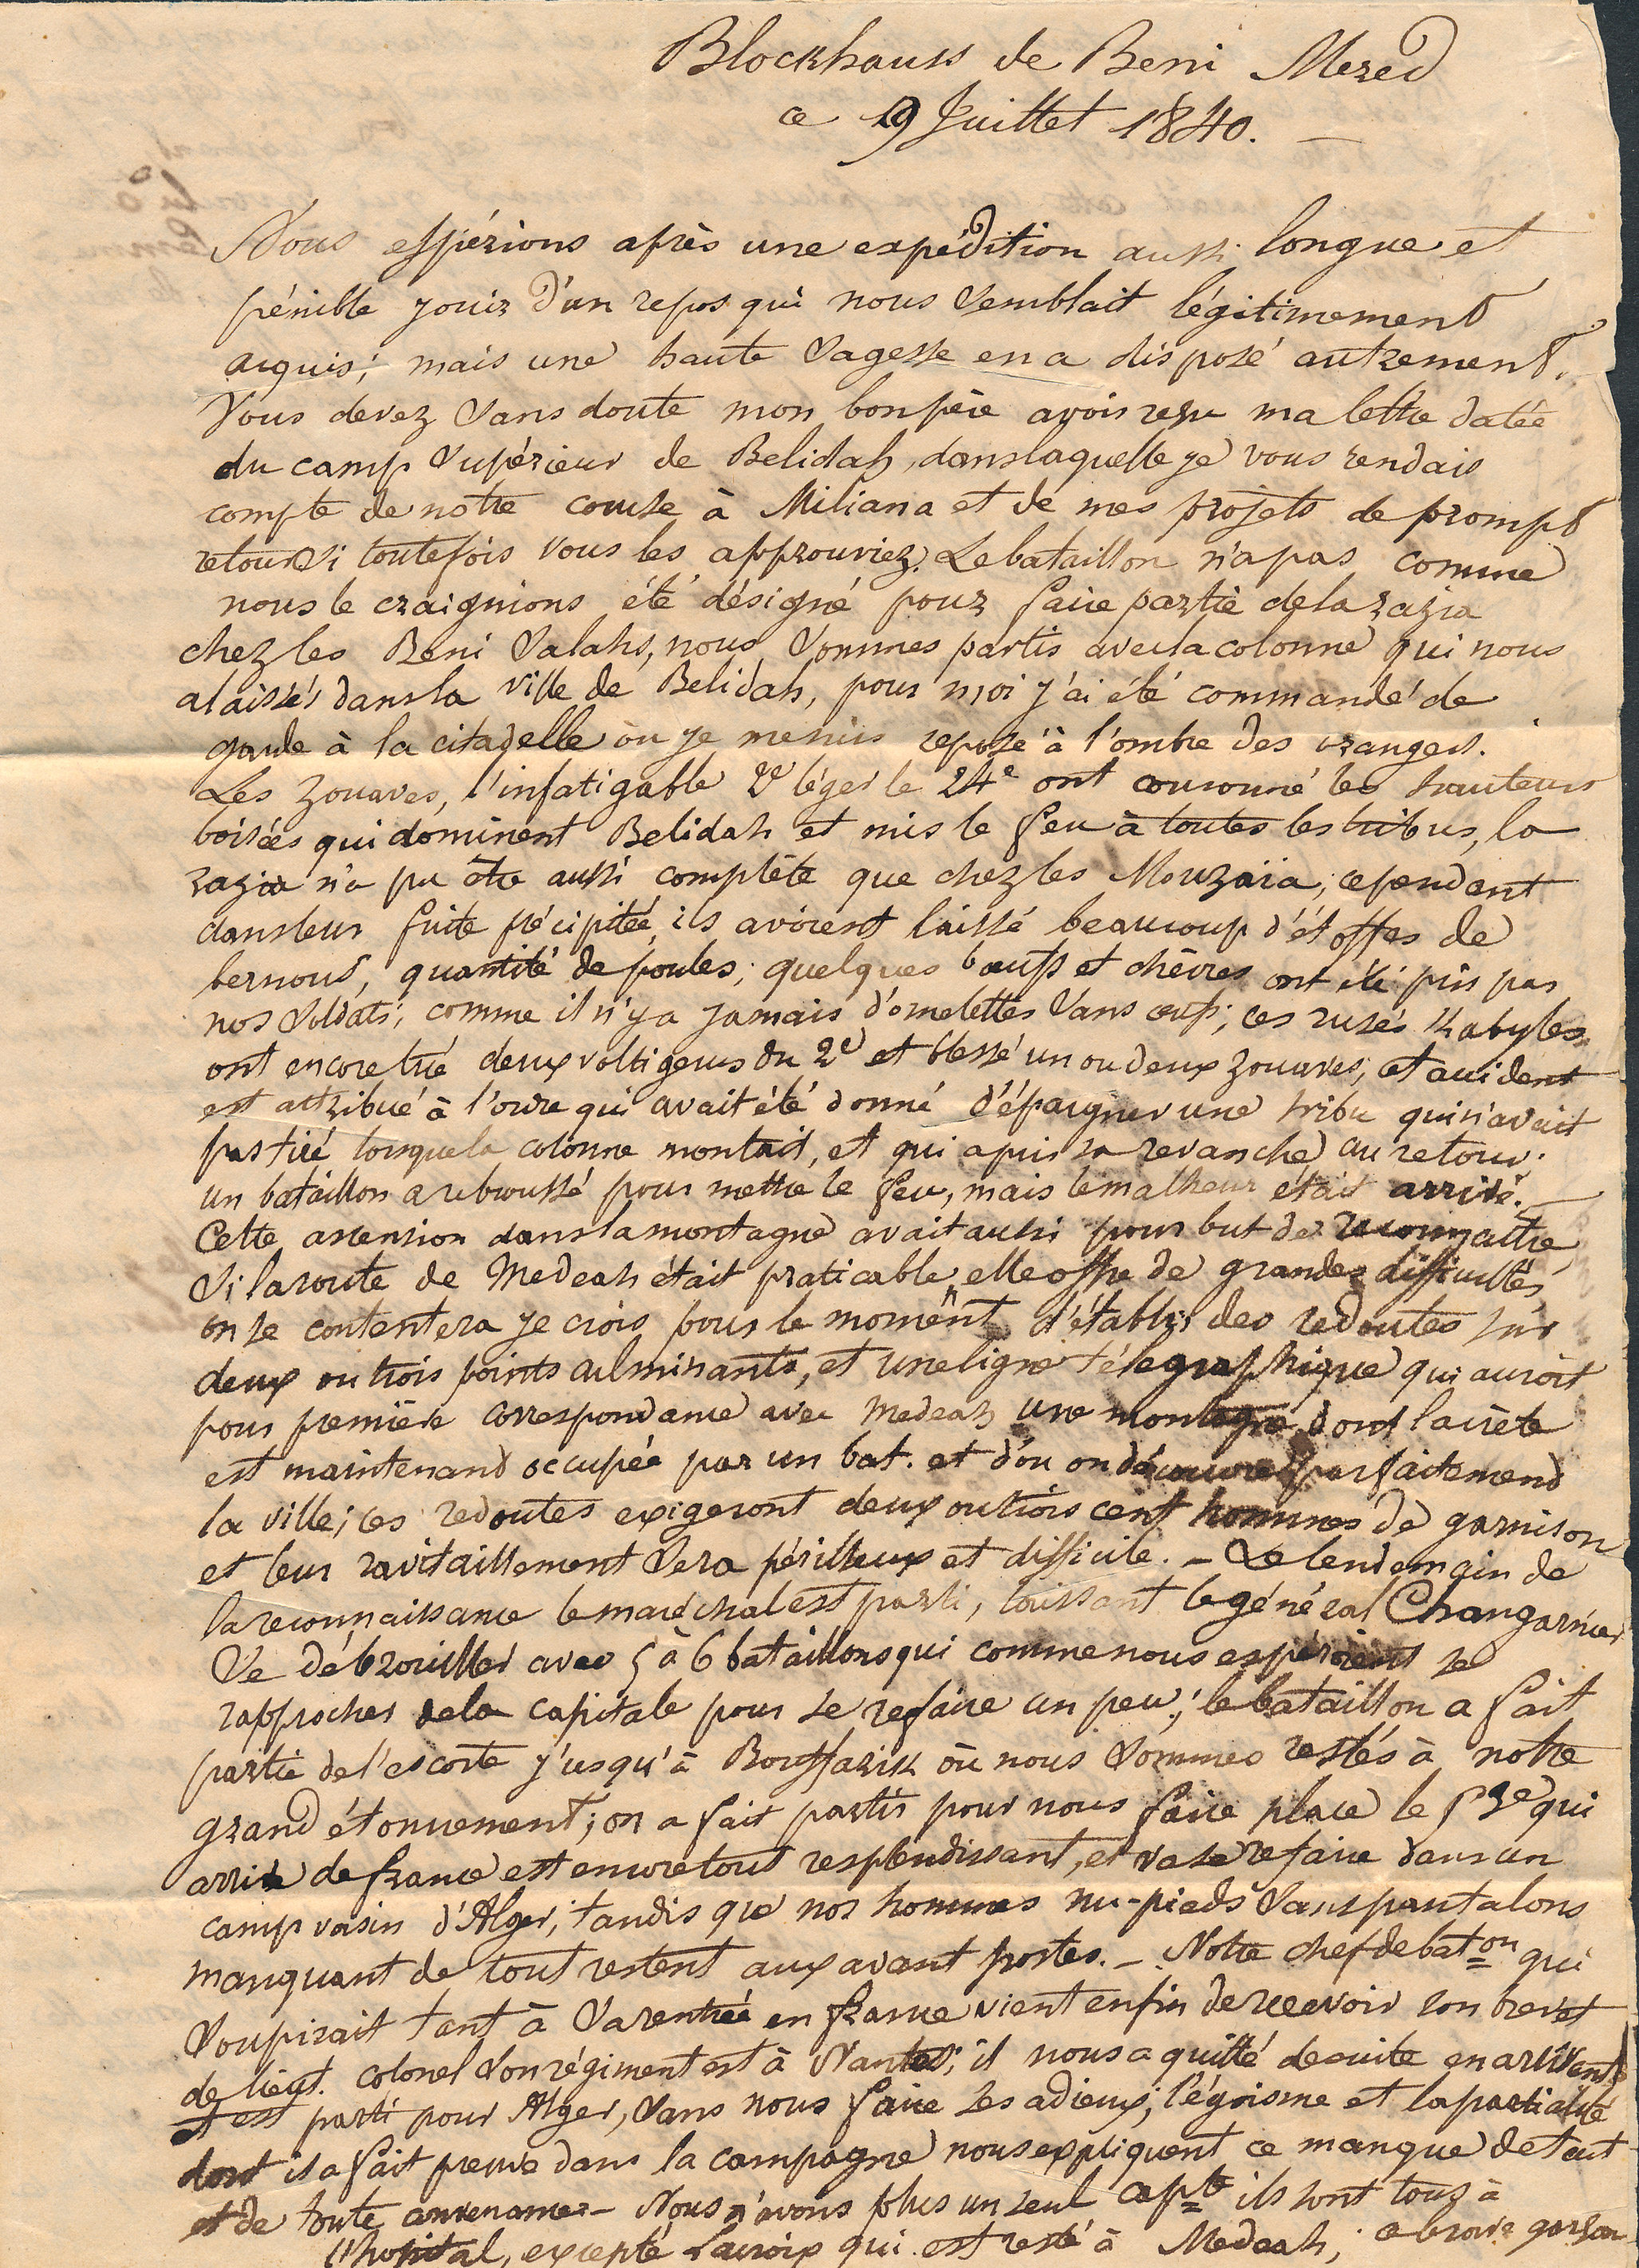 Blockhauss de Beni Mered
ce 9 Juillet 1840. —
Nous espérions après une expédition aussi longue et
pénible jouir d'un repos qui nous semblait légitimement
acquis; mais une haute sagesse en a disposé autrement.
Vous devez sans doute mon bon père avoir reçu ma lettre datée
du camp supérieur de Belidah, dans laquelle je vous rendais
compte de notre course à Miliana et de mes projets de prompt
retour si toutefois vous les approuviez. Le bataillon n'a pas comme
nous le craignions été désigné pour faire partie de la razia
chez les Beni Salahs, nous sommes partis avec la colonne qui nous
a laissés dans la ville de Belidah, pour moi j'ai été commandé de
garde à la citadelle où je me suis reposé à l'ombre des orangers.
Les zouaves, l'infatigable 2e léger le 24e ont couronné les hauteurs
boisées qui dominent Belidah et mis le feu à toutes les tribus, la
razia n'a pu être aussi complète que chez les Mouzaïa; cependant
dans leur fuite précipitée, ils avoient laissé beaucoup d'étoffes de
bernous, quantité de poules; quelques bœufs et chèvres ont été pris par
nos soldats; comme il n'y a jamais d'omelettes sans œufs; ces rusés Kabyles
ont encore tué deux voltigeurs du 2e et blessé un ou deux zouaves; cet accident
est attribué à l'ordre qui avait été donné d'épargner une tribu qui n'avait
pas tiré lorsque la colonne montait, et qui a pris sa revanche au retour.
un bataillon a rebroussé pour mettre le feu, mais le malheur était arrivé. —
Cette ascension dans la montagne avait aussi pour but de reconnaitre
si la route de Medeah était praticable, elle offre de grandes difficultés
on se contentera je crois pour le moment d'établir des redoutes sur
deux ou trois points culminants, et une ligne télégraphique qui auroit
pour première correspondance avec Medeah une montagne dont l'arrête
est maintenand occupée par un bat. et d'où on découvre parfaitemend
la ville; ces redoutes exigeront deux ou trois cent hommes de garnison
et leur ravitaillement sera périlleux et difficile. — Le lendemain de
la reconnaissance le maréchal est parti, laissant le général Changarnier
se débrouiller avec 5 à 6 bataillons qui comme nous espéroient se
rapprocher de la capitale pour se refaire un peu; le bataillon a fait
partie de l'escorte j'usqu'à Bouffarik où nous sommes restés à notre
grand étonnement; on a fait partir pour nous faire place le 53e qui
arrivé de france est encore tout resplendissant, et va se refaire dans un
camp voisin d'Alger, tandis que nos hommes nu-pieds sans pantalons
manquant de tout restent aux avant postes. — Notre chef de bat.on qui
soupirait tant à sa rentrée en france vient enfin de recevoir son brevet
de lieut. colonel son régiment est à Nantes; il nous a quitté de suite en arrivant
et est parti pour Alger, sans nous faire ses adieux; l'égoisme et la partialité
dont il a fait preuve dans la campagne nous expliquent ce manque de tact
et de toute convenance — Nous n'avons plus un seul capne ils sont tous à
l'hopital, excepté Lacroix qui est resté à Medeah; ce brave garçon